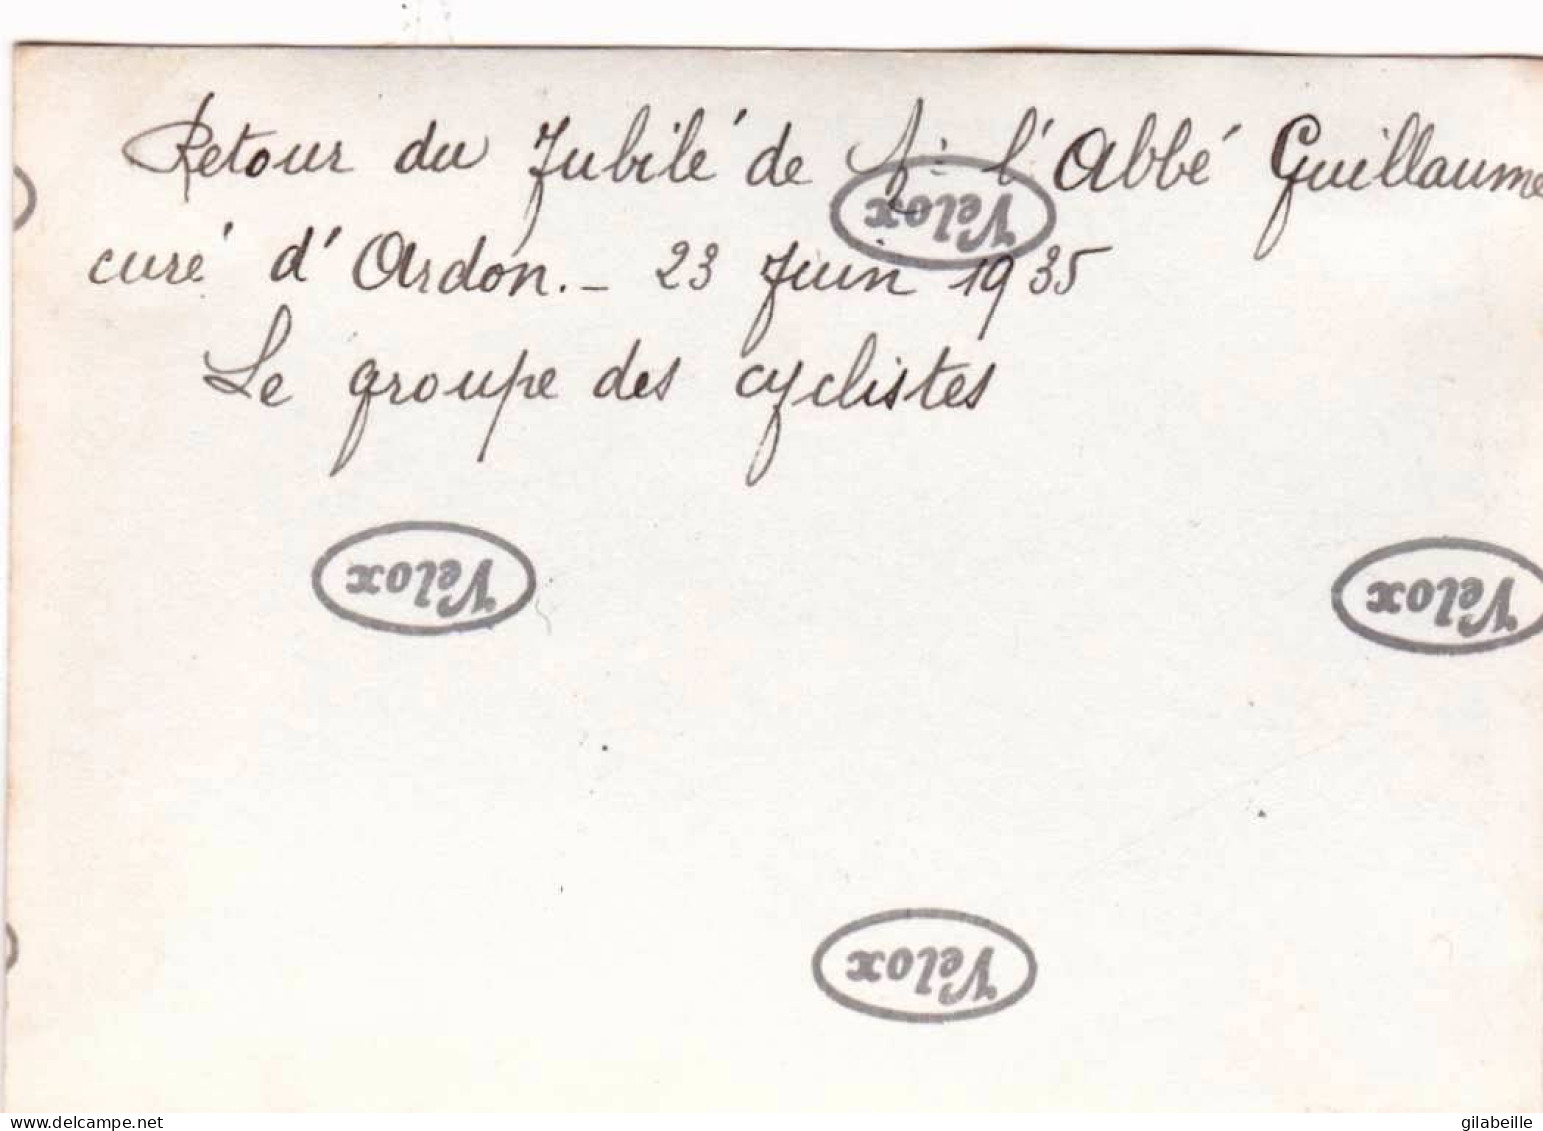 Retour du Jubilé de l'Abbé Guillaume
curé d'Ardon. - 23 Juin 1935
Le groupe des cyclistes
Velox
Velox
Velox
Velox
www.delcampe.net
gilabeille